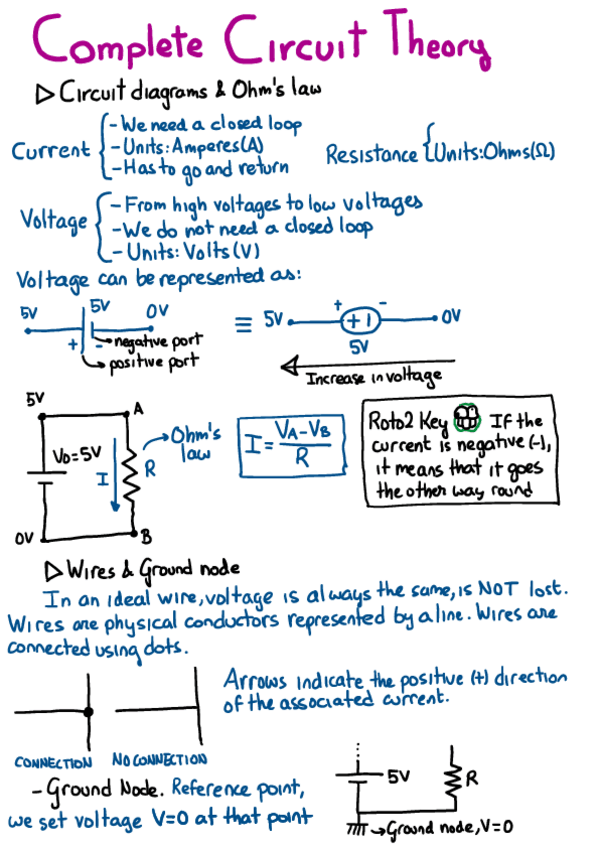 Complete Circuit Theory
▷ Circuit diagrams & Ohm's law
Current { - We need a closed loop
- Units: Amperes (A)
- Has to go and return
Resistance { Units: Ohms (Ω)
Voltage { - From high voltages to low voltages
- We do not need a closed loop
- Units: Volts (V)
Voltage can be represented as:
5V 5V 0V
+ -
negative port
positive port
≡ 5V + - 0V
+ I
5V
Increase in voltage
5V A
V0=5V I R
Ohm's
law
0V B
I = VA-VB / R
Roto2 Key If the
current is negative (-),
it means that it goes
the other way round
▷ Wires & Ground node
In an ideal wire, voltage is always the same, is NOT lost.
Wires are physical conductors represented by a line. Wires are
connected using dots.
Arrows indicate the positive (+) direction
of the associated current.
CONNECTION NO CONNECTION
- Ground Node. Reference point,
we set voltage V=0 at that point
5V R
Ground node, V=0